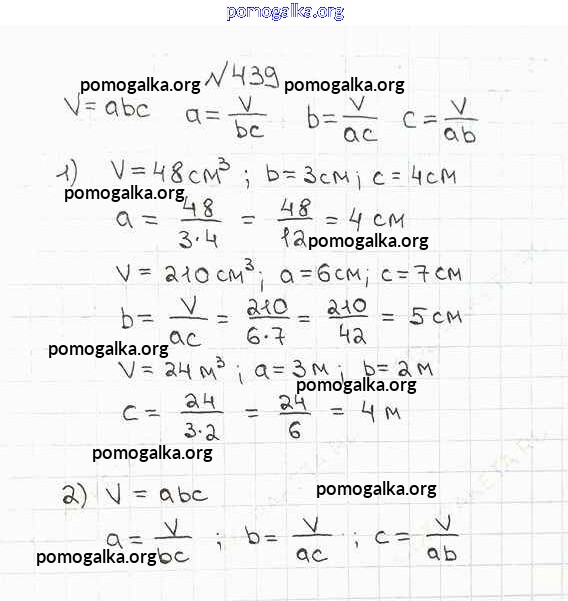 pomogalka.org
№439
pomogalka.org pomogalka.org
V=abc a=V/bc b=V/ac c=V/ab
1) V=48см³; b=3см; c=4см
pomogalka.org
a = 48/3·4 = 48/12 = 4 см
pomogalka.org
V = 210см³; a=6см; c=7см
b = V/ac = 210/6·7 = 210/42 = 5см
pomogalka.org
V= 24м³; a=3м; b=2м
pomogalka.org
c = 24/3·2 = 24/6 = 4м
pomogalka.org
2) V = abc
pomogalka.org
a = V/bc ; b= V/ac ; c= V/ab
pomogalka.org